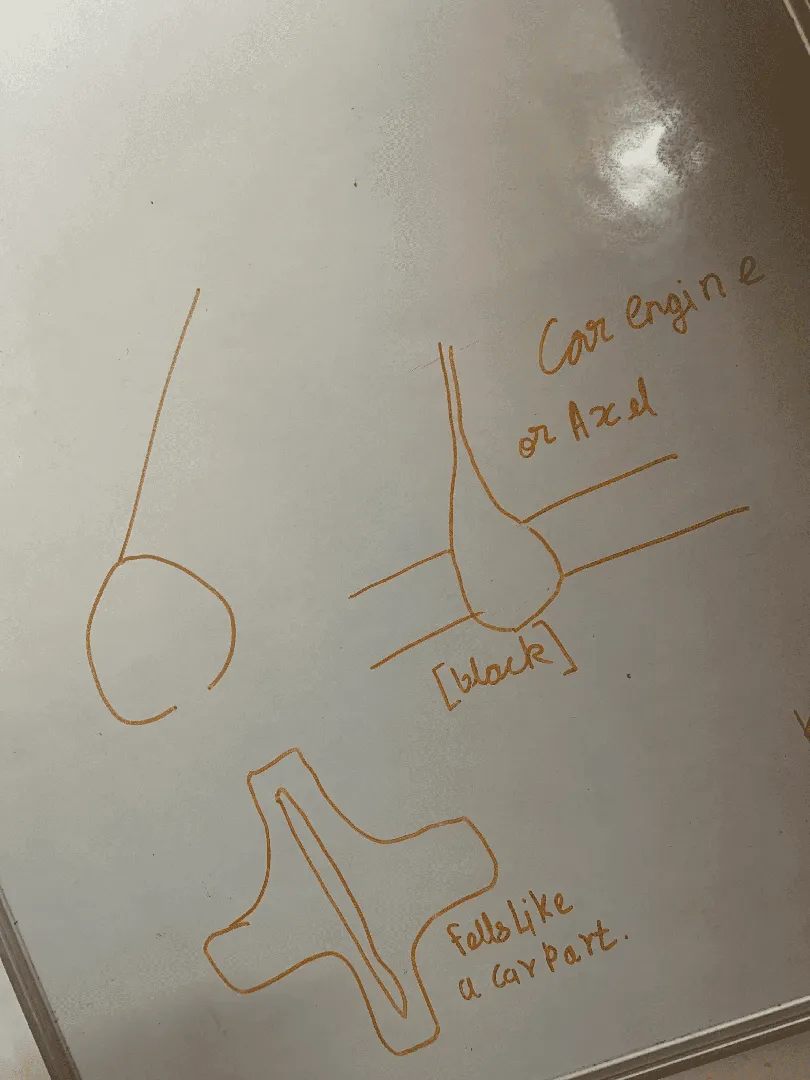 Car engine
or Axel
[black]
fells like
a car part.